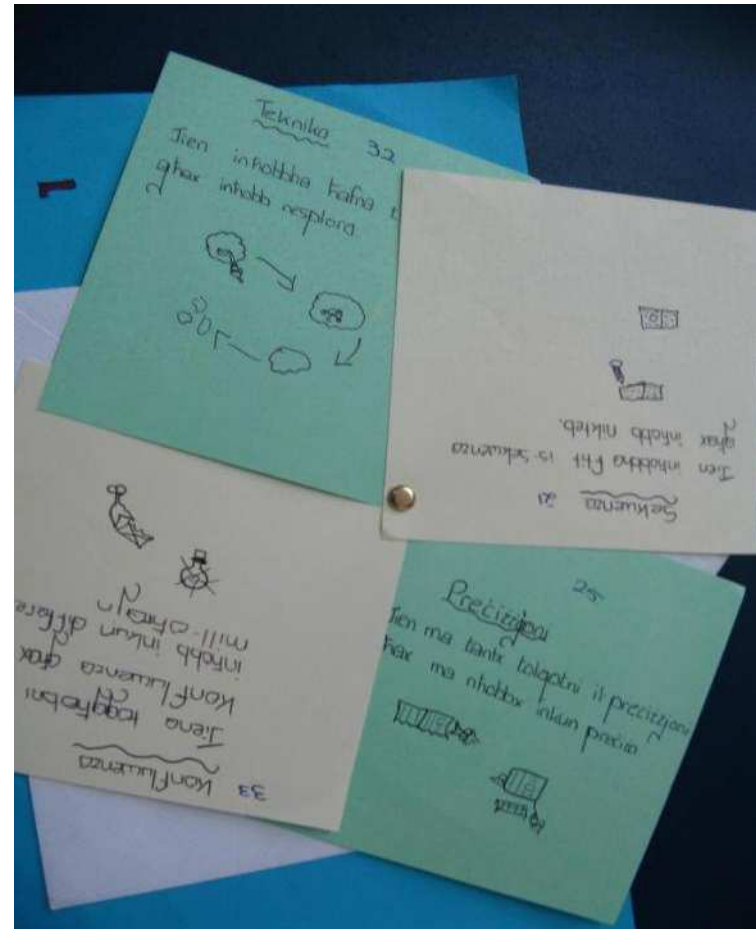 1
Teknika 32
Jien inħobbha ħafna t
għax inħobb nesplora
Sekwenza 20
Jien inħobbha Ftit is-sekwenza
għax inħobb nikteb.
Preċiżjoni 25
Jien ma tantx tolqotni il-preċiżjoni
ħax ma nħobbx inkun preċiża
Konfluwenza 33
Jiena toggħobni
Konfluwenza għax
inħobb inkun differe
mill-oħrajn